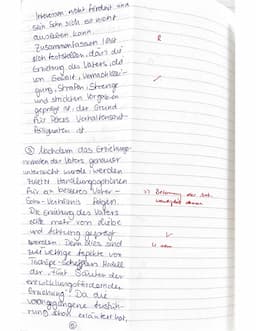 Interessen nicht fördert und
sein Sohn sich so nicht
ausleben kann.
Zusammenfassend lässt
sich feststellen, dass die
Erziehung des Vaters, die
von Gewalt, Vernachlässi-
gung, Strafen, Strenge
und strikten Vorgaben
geprägt ist, der Grund
für
ist.
③ Nachdem das Erziehungs-
des Vaters genauer
untersucht wurde, werden
zwei Handlungsoptionen
für ein besseres Vater-
Sohn-Verhältnis folgen.
Die Erziehung des Vaters
sollte mehr von Liebe
und Achtung geprägt
werden. Denn dies sind
zwei wichtige Aspekte von
Modell
der "fünf Säulen der
entwicklungsfördernden
Erziehung". Da die
vorangegangene
schon erläutert hat,